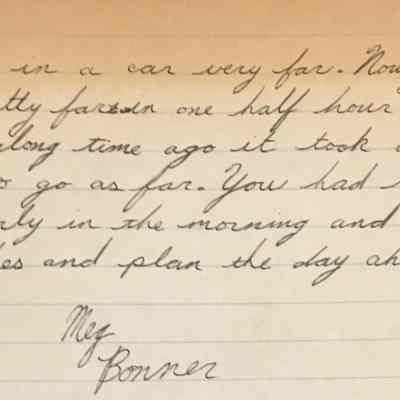 in a car very far. Now
tly far in one half hour
along time ago it took
o go as far. You had
rly in the morning and
es and plan the day ah
Meg
Bonner